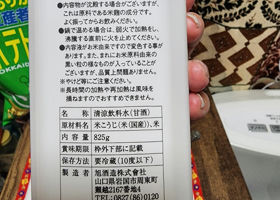 ●内容物が沈殿する場合がございますが、
これは原料である米麹の成分です。
よく振ってからお飲みください。
●鍋で温める場合は、弱火で加熱をし、
沸騰する直前に火を止めてください。
●内容液がお米由来ですので変色する事が
あります。また、まれにお米原料由来の
黒い粒の様なものが入っていることが
ございますが、品質には問題ありません。
※やけど等にご注意ください。
※長時間の加熱や再加熱は風味を
損ねますのでご遠慮ください。
名称 清涼飲料水(甘酒)
原材料名 米こうじ(米(国産))、米
内容量 825g
賞味期限 枠外下部に記載
保存方法 要冷蔵(10度以下)
製造者 旭酒造株式会社
山口県岩国市周東町
獺越2167番地4
TEL.0827(86)0120
HOKKAIDO